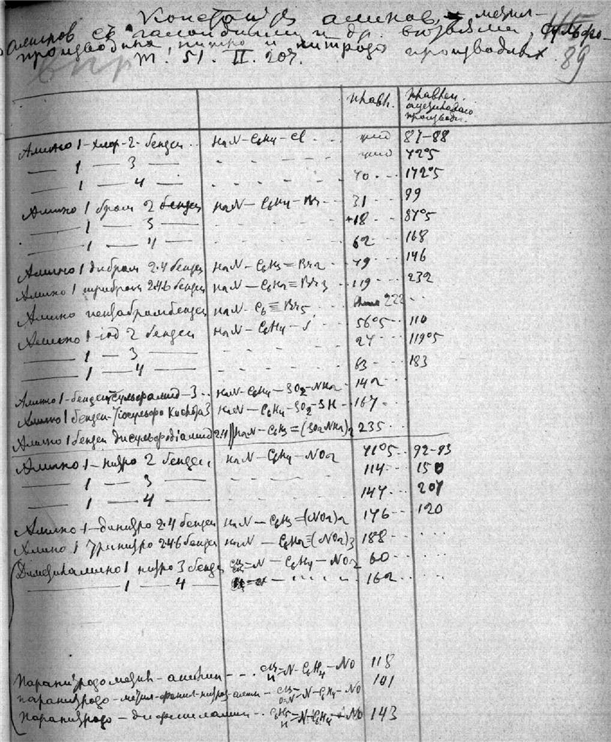 Константы аминов, метил-
аминров съ галоидными и др. сульфо-
производныя, нитро и нитрозо производных.
т. 51. II. 207.
89
плавл. плавлен. ацетиловаго производн.
Амино 1-хлор-2-бензол.. H2N-C6H4-Cl жид 87-88
— 1 — 3 — жид 72°5
— 1 — 4 — 70 172°5
Амино 1 бром 2 бензол H2N-C6H4-Br 31 99
— 1 — 3 — +18 87°5
— 1 — 4 — 62 168
Амино 1 дибром 2.4 бензол H2N-C6H3=Br2 79 146
Амино 1 трибром 246 бензол H2N-C6H2≡Br3 119 232
Амино пентабромбензол H2N-C6≡Br5 222
Амино 1-iод 2 бензол H2N-C6H4-J 56°5 110
— 1 — 3 — 27 119°5
— 1 — 4 — 63 183
Амино 1-бензол сульфамид-3.. H2N-C6H4-SO2-NH2 142
Амино 1 бензол-тiосульфо кислота 3 H2N-C6H4-SO2-SH 167
Амино 1 бензол дисульфодiамид 2.4 H2N-C6H3=(SO2NH2)2 235
Амино 1-нитро 2 бензол H2N-C6H4-NO2 71°5 92-93
— 1 — 3 — 114 150
— 1 — 4 — 147 207
Амино 1-динитро 2.4 бензол H2N-C6H3=(NO2)2 176 120
Амино 1 тринитро 246 бензол H2N-C6H2≡(NO2)3 188
Диметиламино 1 нитро 3 бензол =N-C6H4-NO2 60
— 1 — 4 — 162
Паранитрозометил-анилин =N-C6H4-NO 118
паранитрозо-метил-фенил-нитроз-амин =N-C6H4-NO 101
Паранитрозо-дифениламин =N-C6H4-NO 143